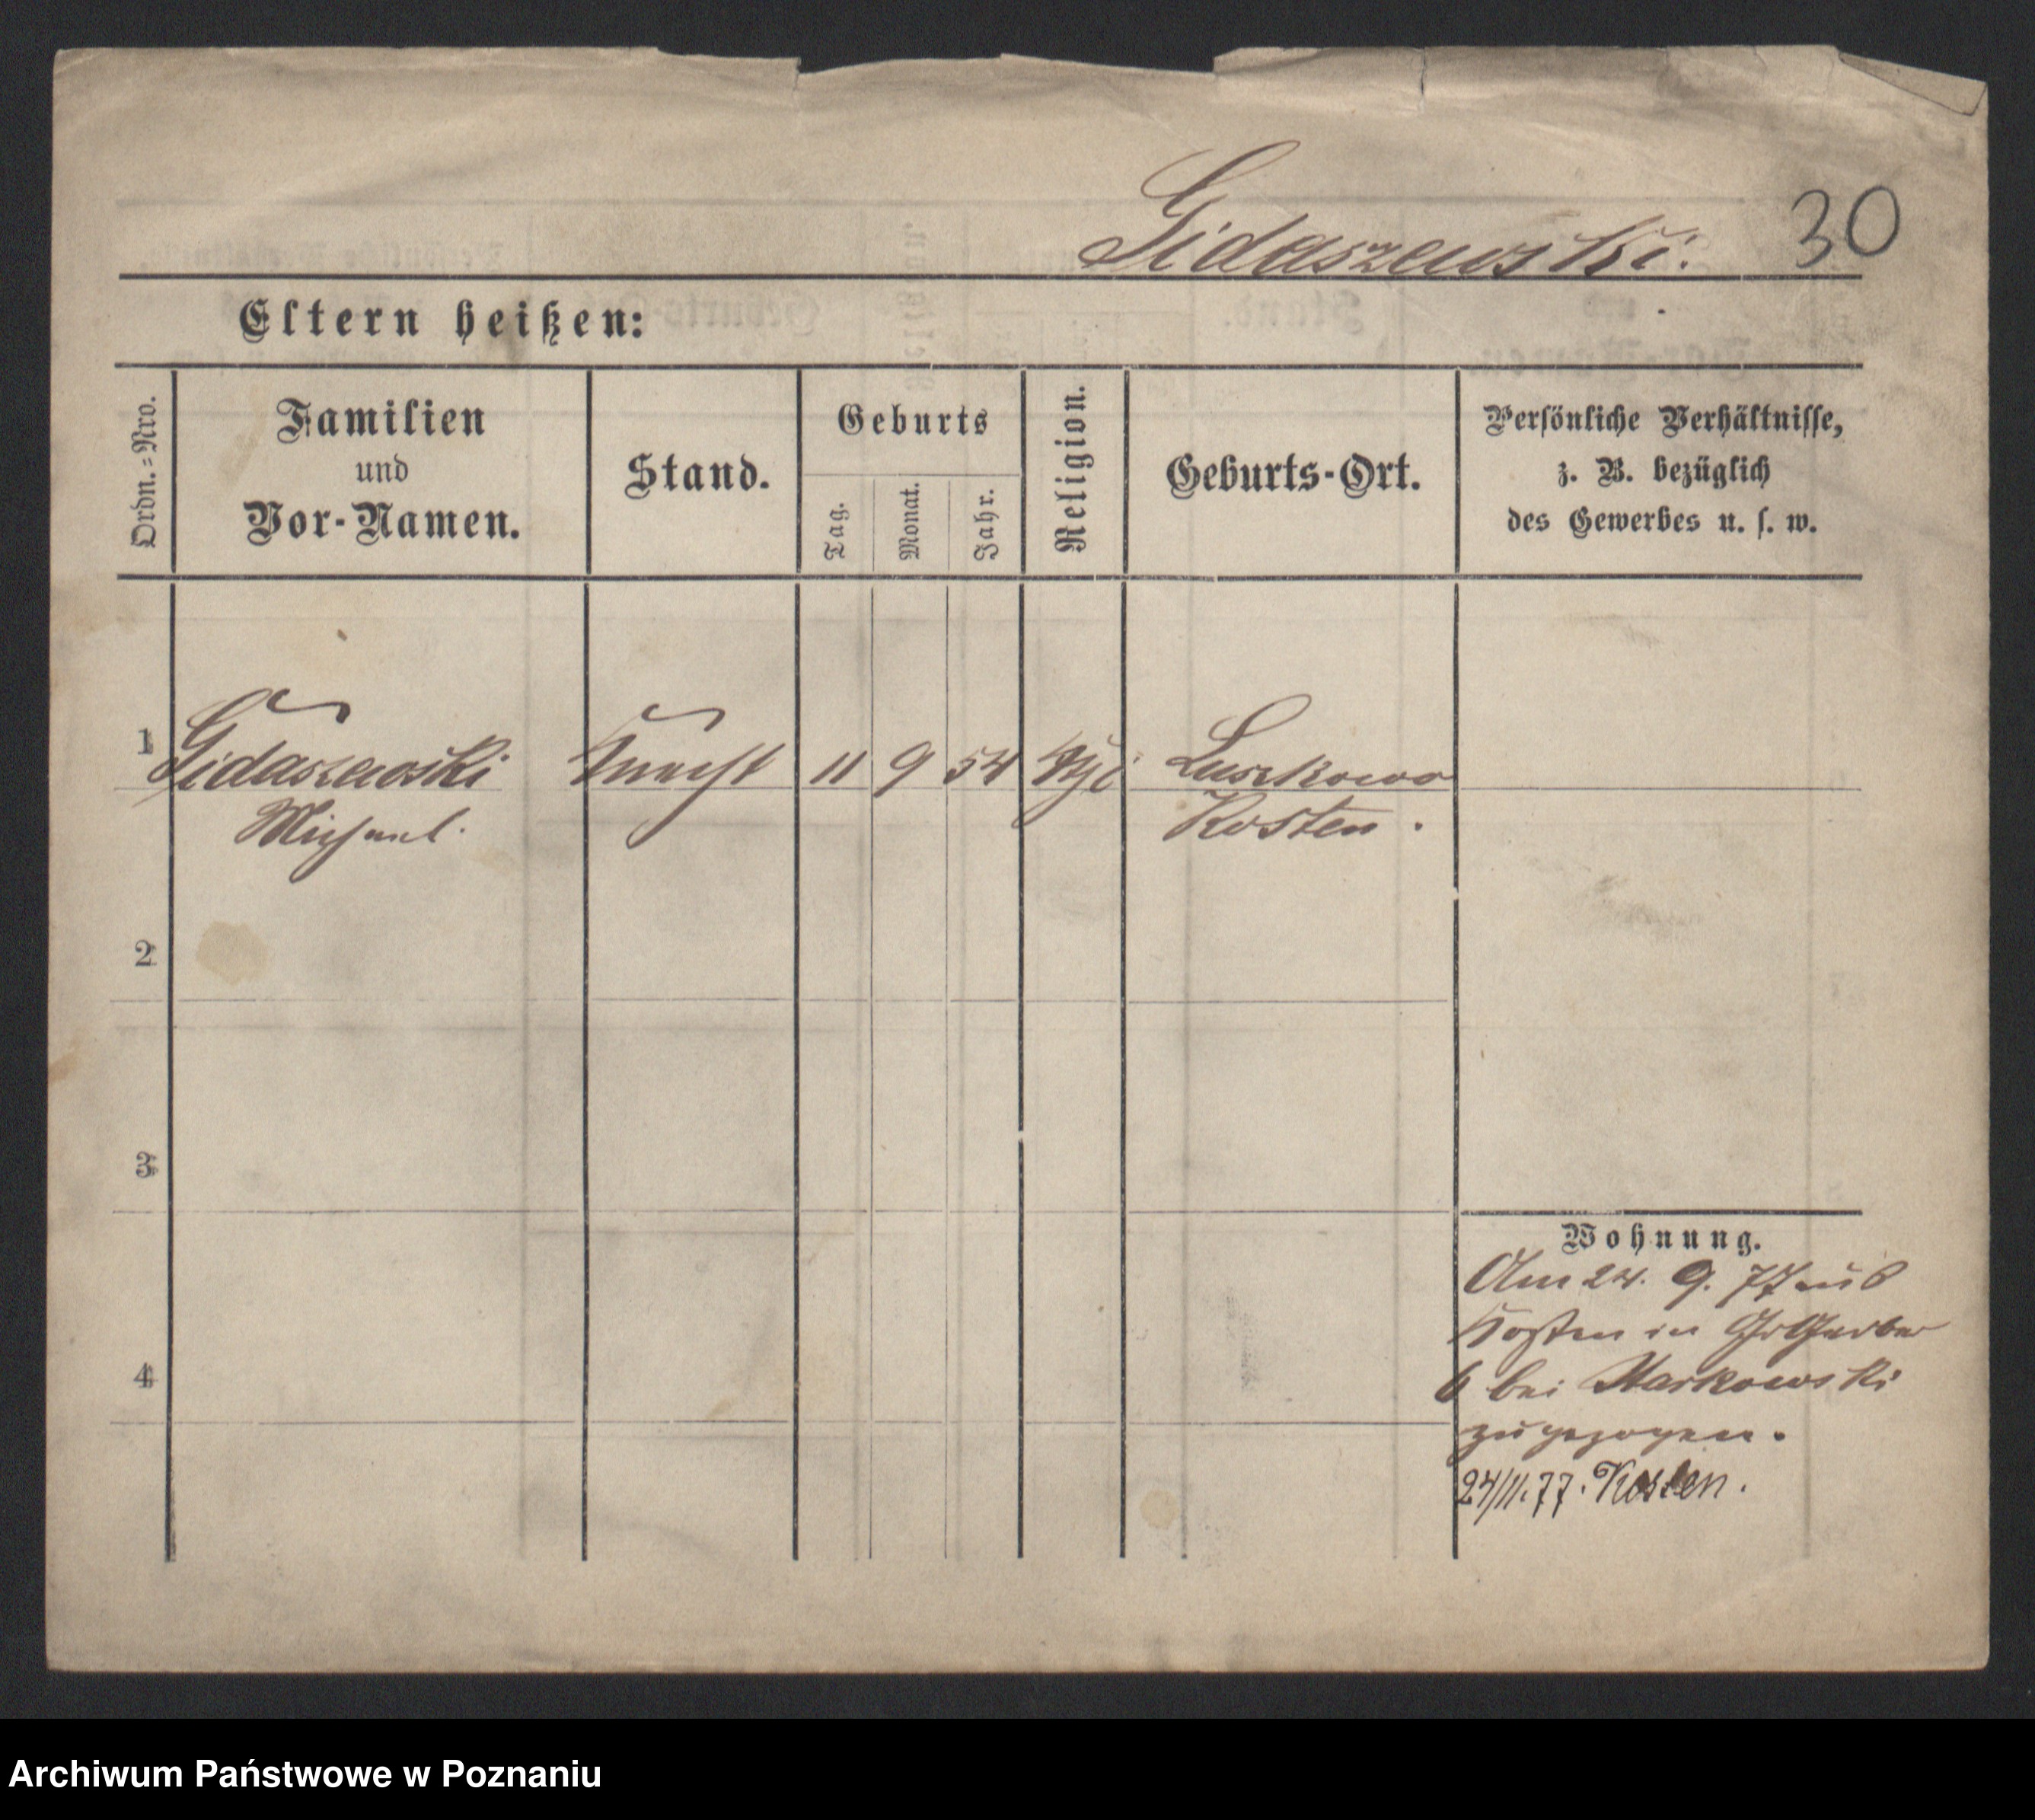 Gidaszewski. 30
Eltern heißen:
Ordn.=Nro.
Familien
und
Vor-Namen.
Stand.
Geburts
Tag.
Monat.
Jahr.
Religion.
Geburts-Ort.
Persönliche Verhältnisse,
z. B. bezüglich
des Gewerbes u. s. w.
1 Gidaszewski Knecht 11 9 54 Luszkowo
Michael. Kosten.
2
3
4
Wohnung.
Am 24. 9. 77 aus
Kosten in Gr Gerber
6 bei Markowski
zugezogen.
24/11.77. Kosten.
Archiwum Państwowe w Poznaniu